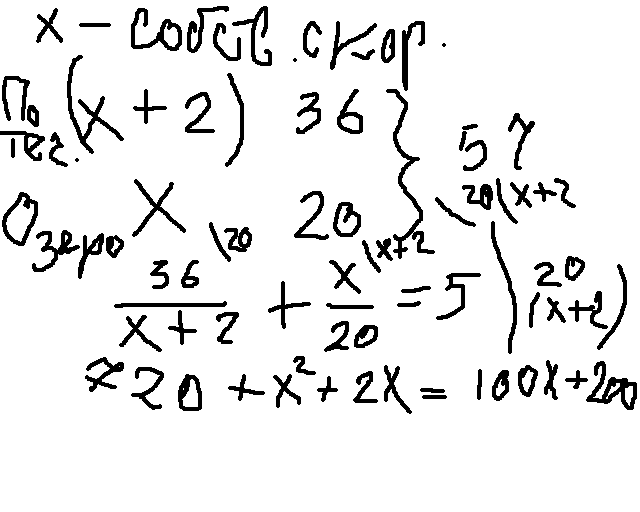 x - собств. скор.
По теч. (x + 2) 36 } 5 ч
Озеро x 20 \20(x+2
36/(x + 2) \20 + x/20 \x+2 = 5 | 20(x+2)
720 + x² + 2x = 100x + 200